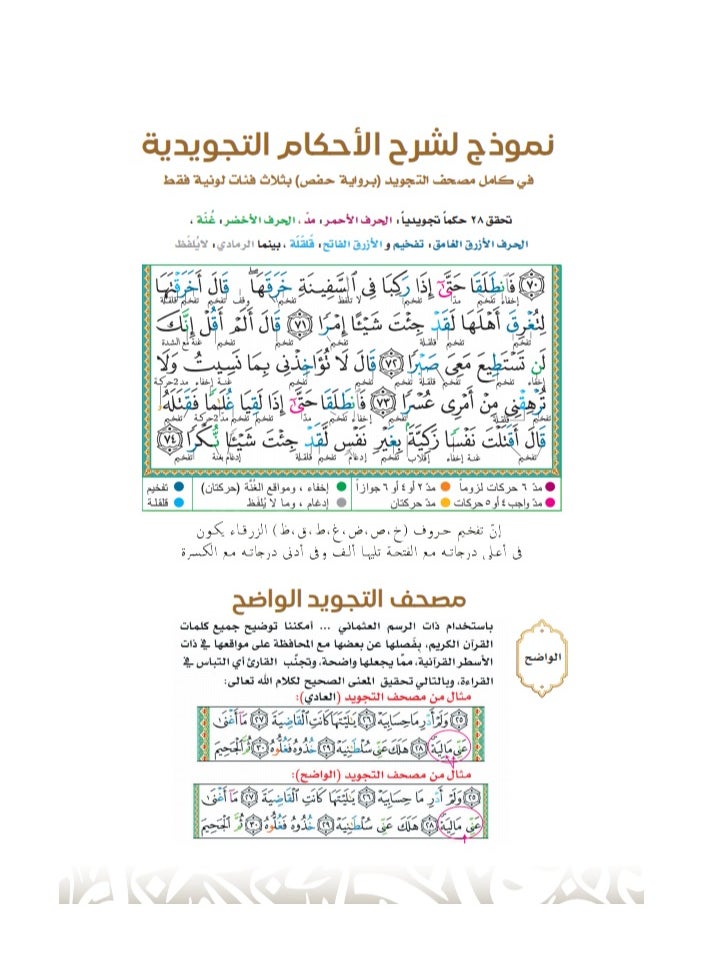 نموذج لشرح الأحكام التجويدية
في كامل مصحف التجويد (برواية حفص) بثلاث فئات لونية فقط
تحقق ٢٨ حكماً تجويدياً: الحرف الأحمر: مدّ ، الحرف الأخضر: غُنّة ،
الحرف الأزرق الغامق: تفخيم و الأزرق الفاتح: قَلقَلَة ، بينما الرمادي: لا يُلفَظ
٧٠ فَٱنطَلَقَا حَتَّىٰٓ إِذَا رَكِبَا فِى ٱلسَّفِينَةِ خَرَقَهَا ۖ قَالَ أَخَرَقْتَهَا
لِتُغْرِقَ أَهْلَهَا لَقَدْ جِئْتَ شَيْـًٔا إِمْرًا ٧١ قَالَ أَلَمْ أَقُلْ إِنَّكَ
لَن تَسْتَطِيعَ مَعِىَ صَبْرًا ٧٢ قَالَ لَا تُؤَاخِذْنِى بِمَا نَسِيتُ وَلَا
تُرْهِقْنِى مِنْ أَمْرِى عُسْرًا ٧٣ فَٱنطَلَقَا حَتَّىٰٓ إِذَا لَقِيَا غُلَـٰمًا فَقَتَلَهُۥ
قَالَ أَقَتَلْتَ نَفْسًا زَكِيَّةًۢ بِغَيْرِ نَفْسٍ لَّقَدْ جِئْتَ شَيْـًٔا نُّكْرًا ٧٤
مدّ ٦ حركات لزوماً مدّ ٢ أو ٤ أو ٦ جوازاً إخفاء ، ومواقع الغُنّة (حركتان) تفخيم
مدّ واجب ٤ أو ٥ حركات مدّ حركتان إدغام ، وما لا يُلفَظ قلقلة
إنّ تفخيم حروف (خ،ص،ض،غ،ط،ق،ظ) الزرقاء يكون
في أعلى درجاته مع الفتحة تليها ألف وفي أدنى درجاته مع الكسرة
مصحف التجويد الواضح
الواضح
باستخدام ذات الرسم العثماني ... أمكننا توضيح جميع كلمات
القرآن الكريم، بفَصلها عن بعضها مع المحافظة على مواقعها في ذات
الأسطر القرآنية، ممّا يجعلها واضحة، وتجنّب القارئ أي التباس في
القراءة، وبالتالي تحقيق المعنى الصحيح لكلام الله تعالى:
مثال من مصحف التجويد (العادي):
٢٥ وَلَمْ أَدْرِ مَا حِسَابِيَهْ ٢٦ يَـٰلَيْتَهَا كَانَتِ ٱلْقَاضِيَةَ ٢٧ مَآ أَغْنَىٰ
عَنِّى مَالِيَهْ ٢٨ هَلَكَ عَنِّى سُلْطَـٰنِيَهْ ٢٩ خُذُوهُ فَغُلُّوهُ ٣٠ ثُمَّ ٱلْجَحِيمَ
مثال من مصحف التجويد (الواضح):
٢٥ وَلَمْ أَدْرِ مَا حِسَابِيَهْ ٢٦ يَـٰلَيْتَهَا كَانَتِ ٱلْقَاضِيَةَ ٢٧ مَآ أَغْنَىٰ
عَنِّى مَالِيَهْ ٢٨ هَلَكَ عَنِّى سُلْطَـٰنِيَهْ ٢٩ خُذُوهُ فَغُلُّوهُ ٣٠ ثُمَّ ٱلْجَحِيمَ